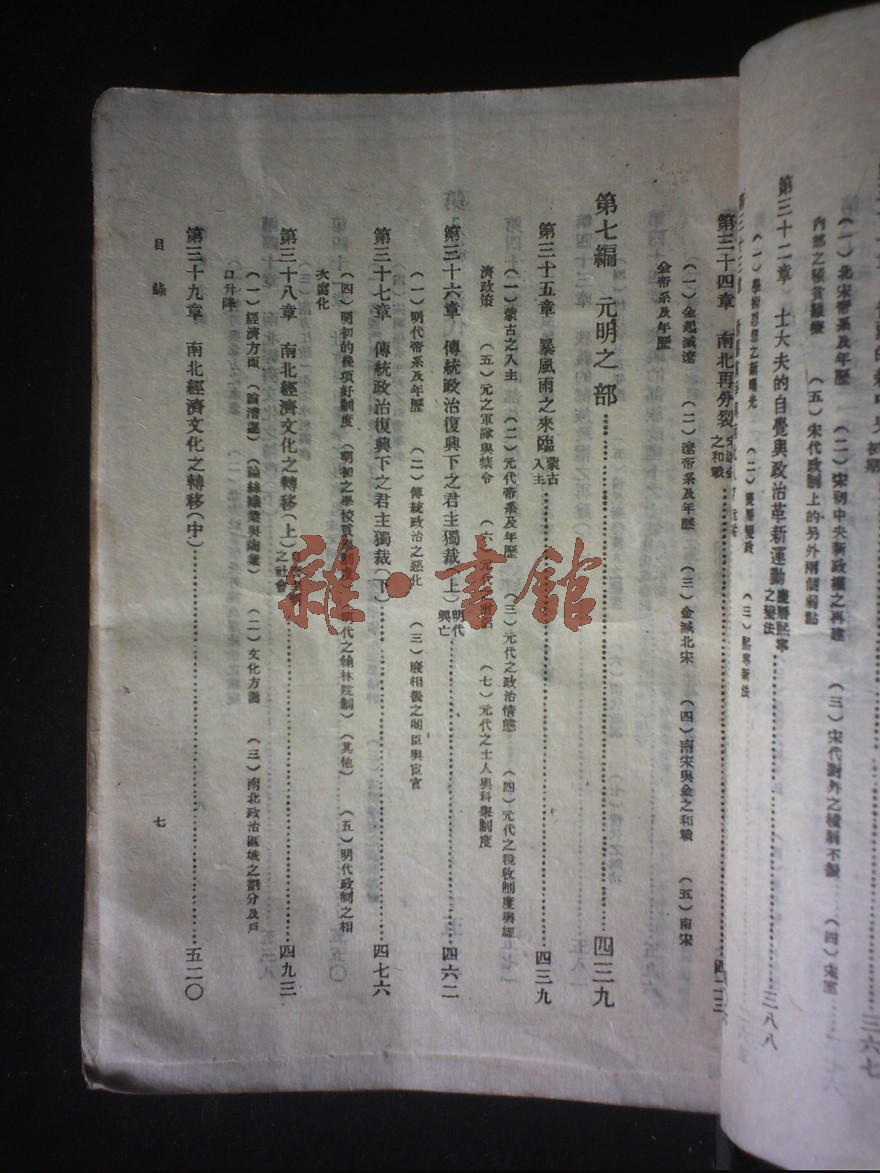 內部之積貧難療　（五）宋代政制上的另外兩個弱點
（一）北宋帝系及年歷　（二）宋初中央新政權之再建　（三）宋代對外之積弱不振　（四）宋室
三六七
第三十二章　士大夫的自覺與政治革新運動慶曆熙寧之變法……三八八
（一）學術思想之新曙光　（二）慶曆變政　（三）熙寧新法
第三十四章　南北再分裂宋遼金之和戰……
（一）金起滅遼　（二）遼帝系及年歷　（三）金滅北宋　（四）南宋與金之和戰　（五）南宋
金帝系及年歷
第七編　元明之部……四三九
第三十五章　暴風雨之來臨蒙古入主……四三九
（一）蒙古之入主　（二）元代帝系及年歷　（三）元代之政治情態　（四）元代之稅收制度與經
濟政策　（五）元之軍隊與禁令　（六）元代之　（七）元代之士人與科舉制度
第三十六章　傳統政治復興下之君主獨裁（上）明代興亡……四六二
（一）明代帝系及年歷　（二）傳統政治之惡化　（三）廢相後之閣臣與宦官
第三十七章　傳統政治復興下之君主獨裁（下）……四七六
（四）明初的幾項好制度　（明初之學校貢舉制度）（明代之翰林院制）（其他）　（五）明代政制之相
次腐化
第三十八章　南北經濟文化之轉移（上）之社會……四九三
（一）經濟方面　（論漕運）　（論絲織業與陶業）　（二）文化方面　（三）南北政治區域之劃分及戶
口升降
第三十九章　南北經濟文化之轉移（中）……五二〇
目錄
七
雜·書館